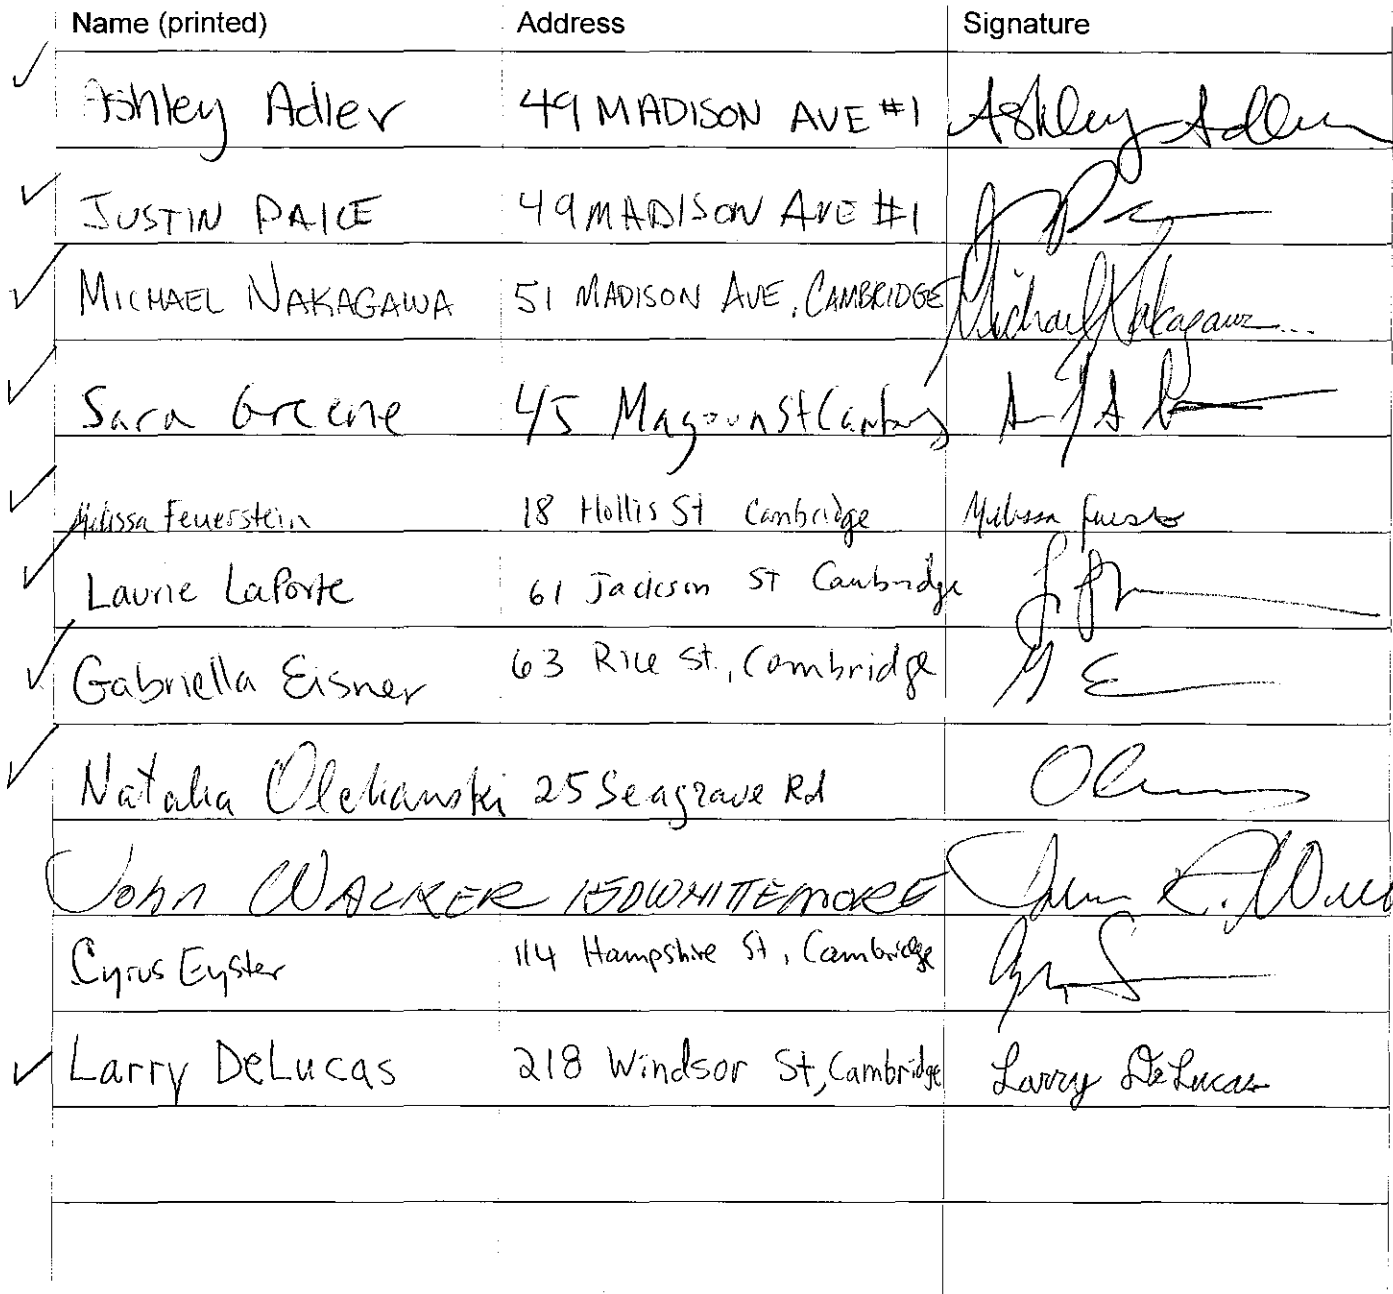 Name (printed) Address Signature
Ashley Adler 49 MADISON AVE #1 Ashley Adler
JUSTIN PAICE 49 MADISON AVE #1
MICHAEL NAKAGAWA 51 MADISON AVE, CAMBRIDGE Michael Nakagawa
Sara Greene 45 Magoun St
Melissa Feuerstein 18 Hollis St Cambridge Melissa
Laurie LaPorte 61 Jackson St Cambridge
Gabriella Eisner 63 Rice St., Cambridge G E
Natalia 25 Seagrave Rd
JOHN WALKER WHITTEMORE
Cyrus Eyster 114 Hampshire St, Cambridge
Larry DeLucas 218 Windsor St, Cambridge Larry DeLucas